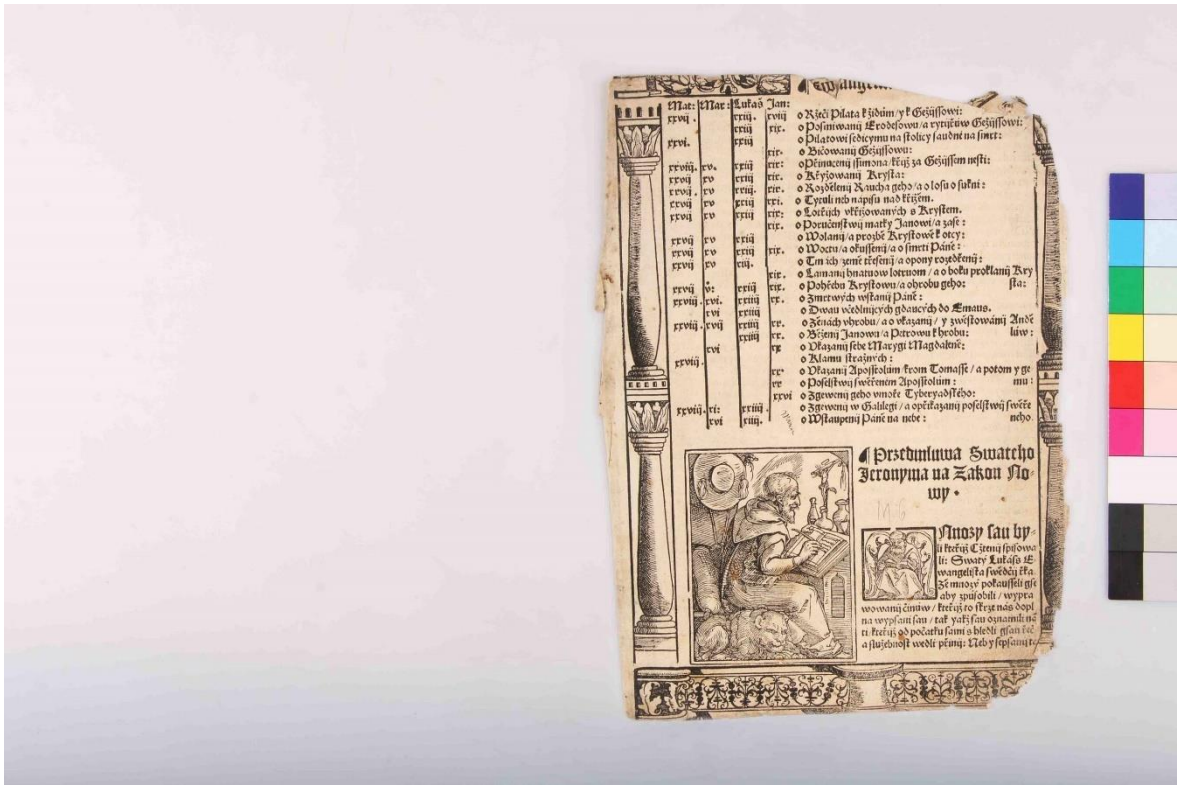 Mat: Mar: Lukaš Jan:
xxvij. xxiij xviij o Ržeči Pilata k židům / y k Gežijssowi:
xxiij xix. o Posmiwanij Erodesowu / a rytijřuow Gežijssowi:
xxvi. xxiij o Pilatowi sedicymu na stolicy saudné na smrt:
xix. o Bičowanij Gežijssowu:
xxviij. xv. xxiij xix: o Přinucenij ssimona / křijž za Gežijssem nesti:
xxvij xv xxiij xix. o Křyžowanij Krysta:
xxvij. xv xxiij xix. o Rozdělenij Raucha geho / a o losu o sukni:
xxvij xv xxiij xxi. o Tytuli neb napisu nad křižem.
xxvij xv xxiij xix: o Lotřijch vkřižowaných s Krystem.
xix. o Poručenstwij matky Janowi / a zase:
xxvij xv xxiij o Wolanij / a prozbě Krystowě k otcy:
xxvij xv xxiij xix. o Woctu / a okussenij / a o smrti Páně:
xxvij xv iij. o Tmách země třesenij / a opony rozedřenij:
xix. o Lamanij hnatuow lotruom / a o boku proklanij Kry
xxvij v: xxiij xix. o Pohřebu Krystowu / a o hrobu geho: sta:
xxviij. xvi. xxiiij xx. o Zmrtwých wstanij Páně:
xvi xxiiij o Dwau včedlnijcych gdaucých do Emaus.
xxviij. xvij xxiiij xx. o Ženách v hrobu / a o vkazanij / y zwěstowánij Andě
xxiiij xx. o Běženij Janowa / a Petrowa k hrobu: lůw:
xvi xx o Vkazanij sebe Marygi Magdaleně:
xxviij. o Klamu stražných:
xx o Vkazanij Aposstolům krom Tomasse / a potom y ge
xx o Poselstwij swěřeném Aposstolům: mu:
xxvi o Zgewenij geho v moře Tyberyadského:
xxviij. xi: xxiiij. o Zgewenij w Galilegi / a o přikazanij poselstwij swěře
xvi xiiij. o Wstaupenij Páně na nebe: neho.
¶ Przedmluwa Swateho
Jeronyma na Zakon No-
wy.
MNozy sau by-
li kteřijž Cžtenij spisowa
li: Swatý Lukáss E
wangelista swědčij řka
Že mnozý pokausseli gse
aby způsobili / wypra
wowanij činuw / kteřijž to skrze nás dopl
na wypsani sau / tak yakž sau oznamili ná
ti kteřijž od počatku sami shledli gsau řeč
a služebnost wedli přitný: Neb y sepsanij to